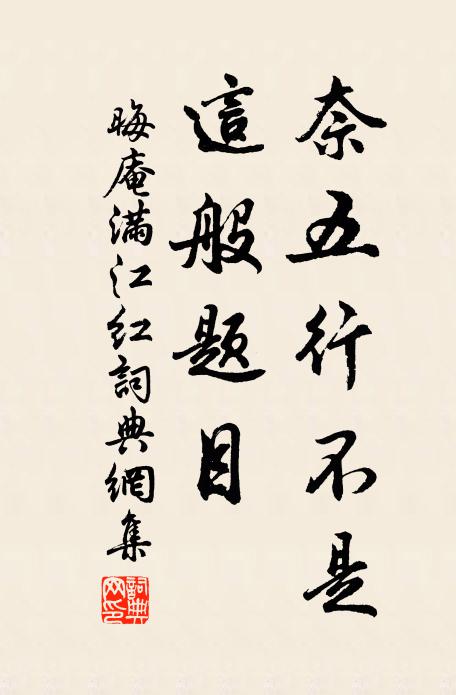 奈五行不是
這般題目
晦庵滿江紅詞典網集
詞典網印